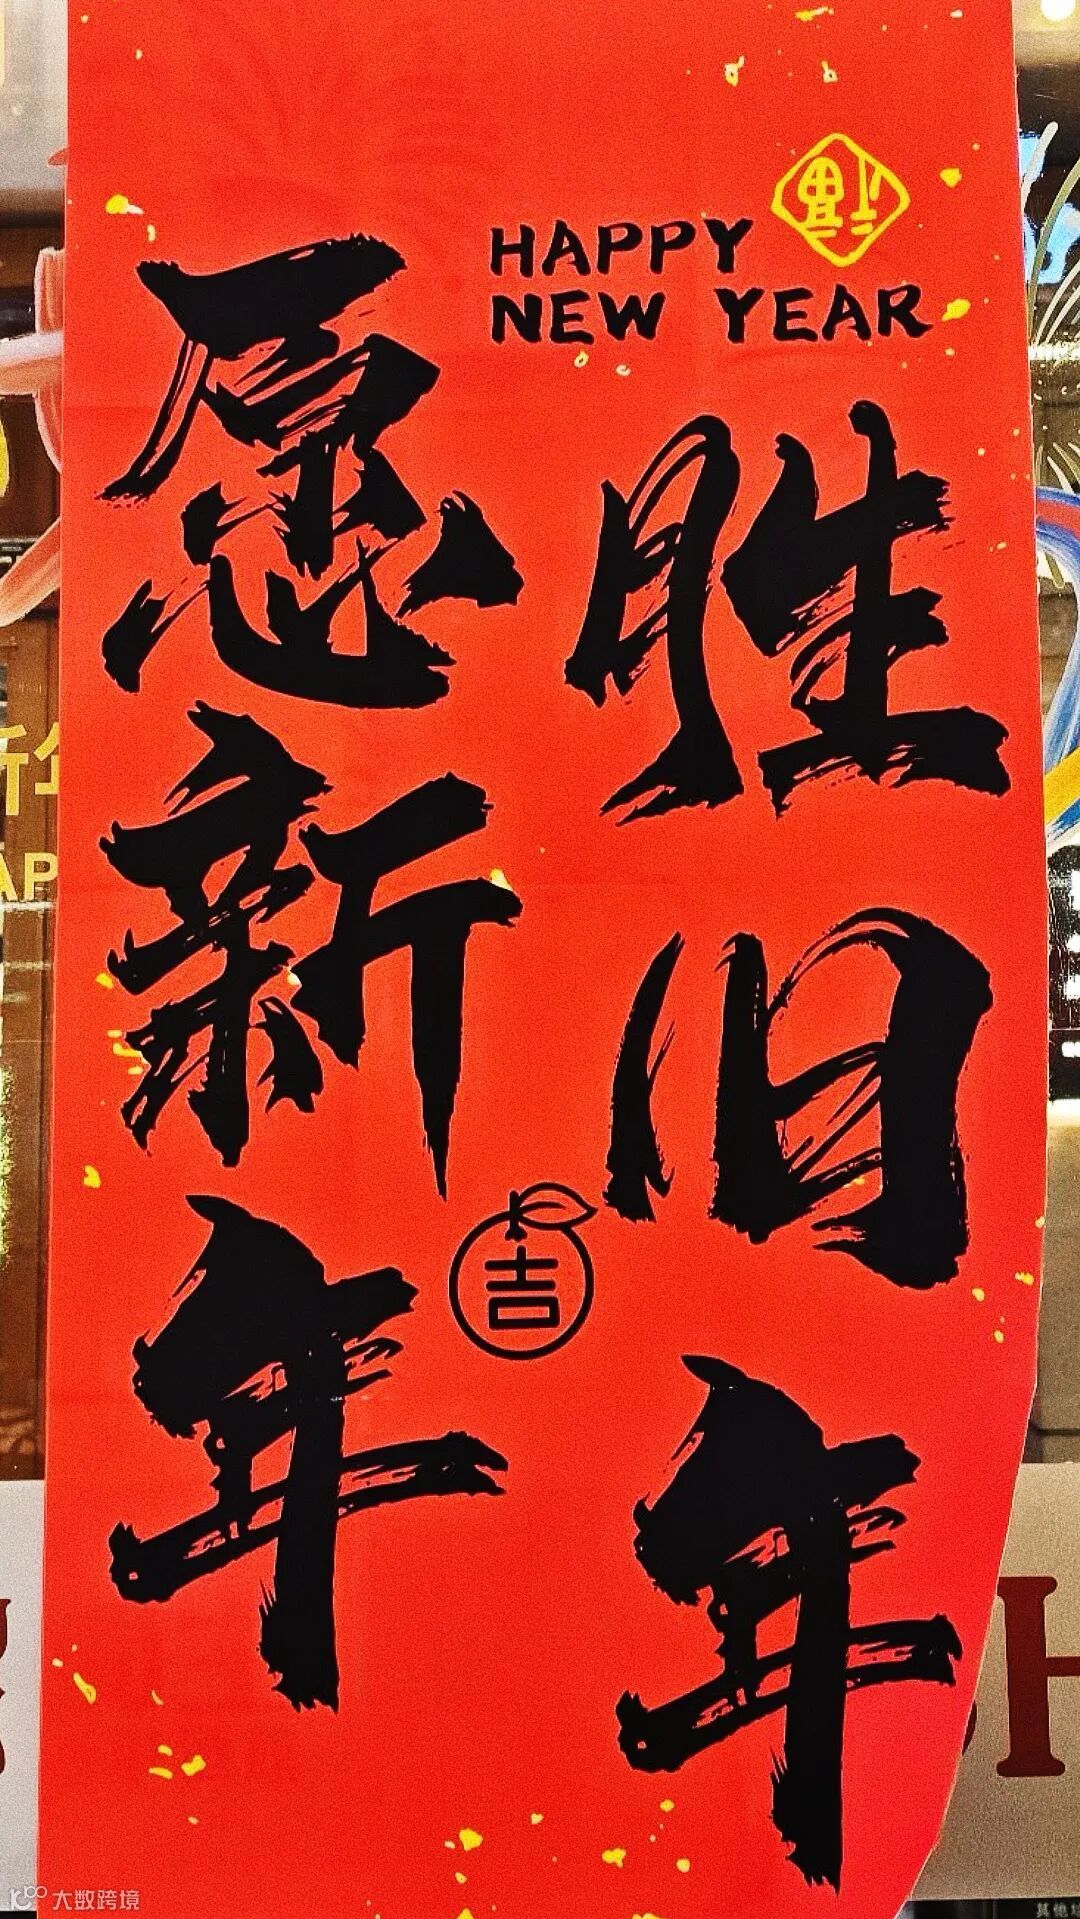 HAPPY
NEW YEAR
福
愿新年
胜旧年
吉
大数跨境